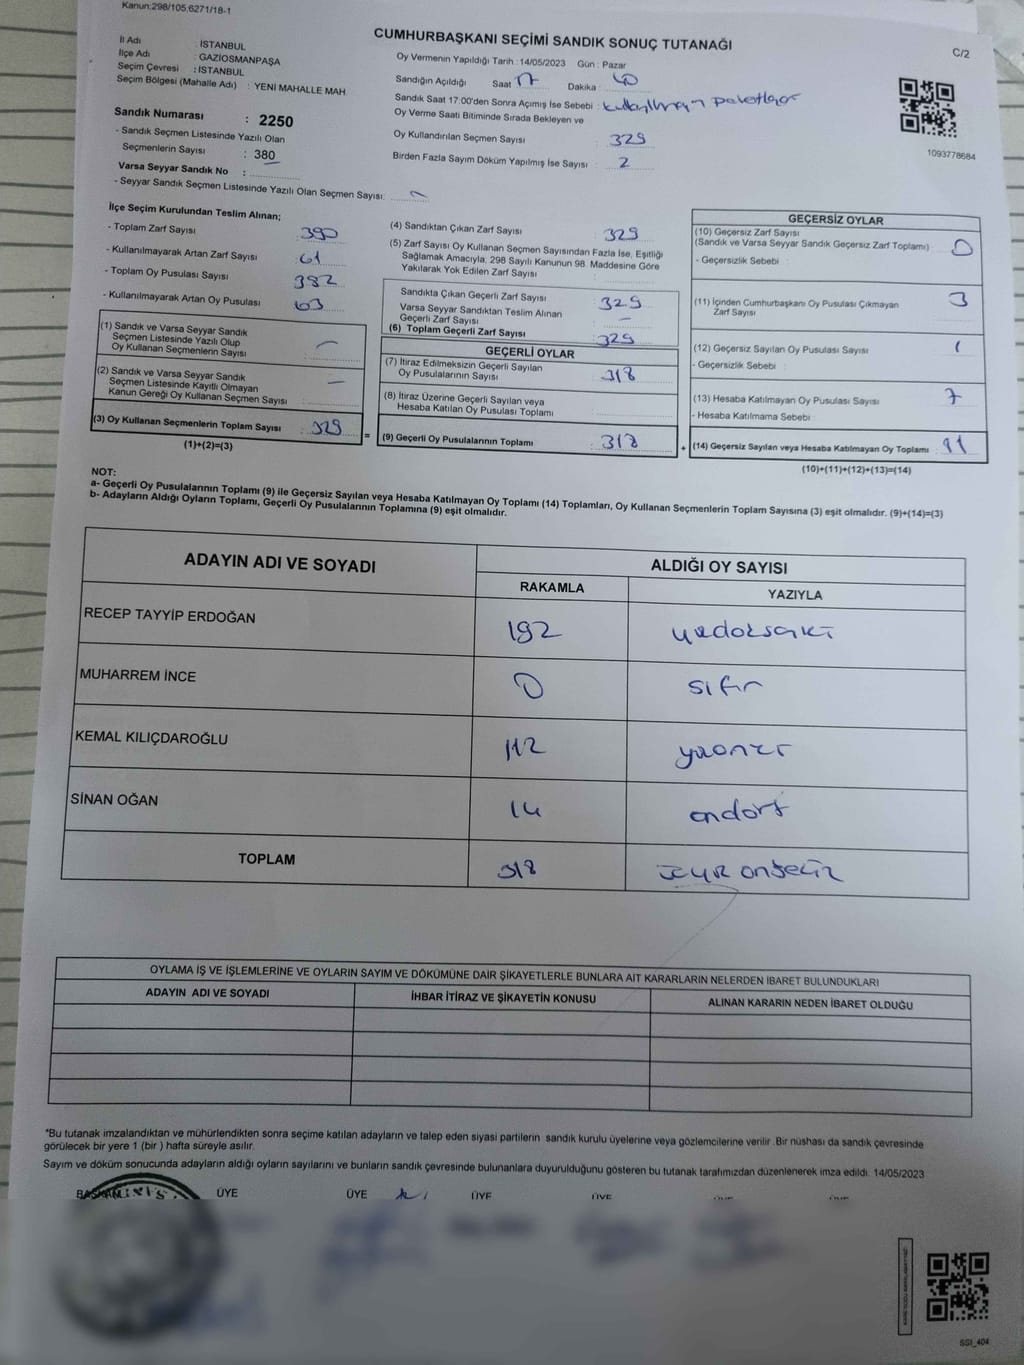 Kanun:298/105,6271/18-1
CUMHURBAŞKANI SEÇİMİ SANDIK SONUÇ TUTANAĞI
C/2
İl Adı : İSTANBUL
İlçe Adı : GAZİOSMANPAŞA
Seçim Çevresi : İSTANBUL
Seçim Bölgesi (Mahalle Adı) : YENİ MAHALLE MAH.
Oy Vermenin Yapıldığı Tarih :14/05/2023 Gün : Pazar
Sandığın Açıldığı Saat 17 Dakika 40
Sandık Saat 17:00'den Sonra Açımış İse Sebebi :
Oy Verme Saati Bitiminde Sırada Bekleyen ve
Oy Kullandırılan Seçmen Sayısı : 329
Birden Fazla Sayım Döküm Yapılmış İse Sayısı : 2
1093778684
Sandık Numarası : 2250
- Sandık Seçmen Listesinde Yazılı Olan
Seçmenlerin Sayısı : 380
Varsa Seyyar Sandık No :
- Seyyar Sandık Seçmen Listesinde Yazılı Olan Seçmen Sayısı:
İlçe Seçim Kurulundan Teslim Alınan;
- Toplam Zarf Sayısı : 390
- Kullanılmayarak Artan Zarf Sayısı : 61
- Toplam Oy Pusulası Sayısı 392
- Kullanılmayarak Artan Oy Pusulası : 63
(1) Sandık ve Varsa Seyyar Sandık
Seçmen Listesinde Yazılı Olup
Oy Kullanan Seçmenlerin Sayısı : —
(2) Sandık ve Varsa Seyyar Sandık
Seçmen Listesinde Kayıtlı Olmayan
Kanun Gereği Oy Kullanan Seçmen Sayısı : —
(3) Oy Kullanan Seçmenlerin Toplam Sayısı : 329
(1)+(2)=(3)
(4) Sandıktan Çıkan Zarf Sayısı : 329
(5) Zarf Sayısı Oy Kullanan Seçmen Sayısından Fazla İse, Eşitliği
Sağlamak Amacıyla, 298 Sayılı Kanunun 98. Maddesine Göre
Yakılarak Yok Edilen Zarf Sayısı :
Sandıkta Çıkan Geçerli Zarf Sayısı : 329
Varsa Seyyar Sandıktan Teslim Alınan
Geçerli Zarf Sayısı : —
(6) Toplam Geçerli Zarf Sayısı : 329
GEÇERLİ OYLAR
(7) İtiraz Edilmeksizin Geçerli Sayılan
Oy Pusulalarının Sayısı : 318
(8) İtiraz Üzerine Geçerli Sayılan veya
Hesaba Katılan Oy Pusulası Toplamı :
= (9) Geçerli Oy Pusulalarının Toplamı : 318 +
GEÇERSİZ OYLAR
(10) Geçersiz Zarf Sayısı
(Sandık ve Varsa Seyyar Sandık Geçersiz Zarf Toplamı) : 0
- Geçersizlik Sebebi :
(11) İçinden Cumhurbaşkanı Oy Pusulası Çıkmayan
Zarf Sayısı : 3
(12) Geçersiz Sayılan Oy Pusulası Sayısı : 1
- Geçersizlik Sebebi :
(13) Hesaba Katılmayan Oy Pusulası Sayısı : 7
- Hesaba Katılmama Sebebi :
(14) Geçersiz Sayılan veya Hesaba Katılmayan Oy Toplamı : 11
(10)+(11)+(12)+(13)=(14)
NOT:
a- Geçerli Oy Pusulalarının Toplamı (9) ile Geçersiz Sayılan veya Hesaba Katılmayan Oy Toplamı (14) Toplamları, Oy Kullanan Seçmenlerin Toplam Sayısına (3) eşit olmalıdır. (9)+(14)=(3)
b- Adayların Aldığı Oyların Toplamı, Geçerli Oy Pusulalarının Toplamına (9) eşit olmalıdır.
ADAYIN ADI VE SOYADI
ALDIĞI OY SAYISI
RAKAMLA YAZIYLA
RECEP TAYYİP ERDOĞAN 192 yüzdoksaniki
MUHARREM İNCE 0 sıfır
KEMAL KILIÇDAROĞLU 112
SİNAN OĞAN 14 ondört
TOPLAM 318 üçyüz onsekiz
OYLAMA İŞ VE İŞLEMLERİNE VE OYLARIN SAYIM VE DÖKÜMÜNE DAİR ŞİKAYETLERLE BUNLARA AİT KARARLARIN NELERDEN İBARET BULUNDUKLARI
ADAYIN ADI VE SOYADI İHBAR İTİRAZ VE ŞİKAYETİN KONUSU ALINAN KARARIN NEDEN İBARET OLDUĞU
*Bu tutanak imzalandıktan ve mühürlendikten sonra seçime katılan adayların ve talep eden siyasi partilerin sandık kurulu üyelerine veya gözlemcilerine verilir .Bir nüshası da sandık çevresinde
görülecek bir yere 1 (bir ) hafta süreyle asılır.
Sayım ve döküm sonucunda adayların aldığı oyların sayılarını ve bunların sandık çevresinde bulunanlara duyurulduğunu gösteren bu tutanak tarafımızdan düzenlenerek imza edildi. 14/05/2023
BAŞKAN ÜYE ÜYE ÜYE ÜYE
SSİ_404